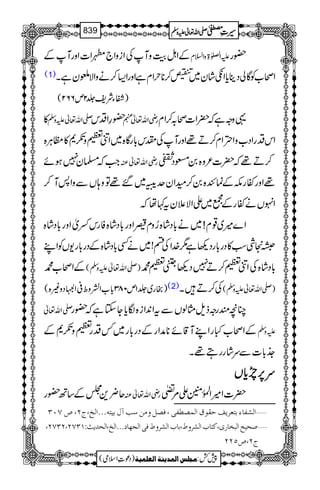 سیرتِ مصطفی صلی اللہ تعالیٰ علیہ وسلم
839
حضور علیہ الصلوٰۃ والسلام کے اہل بیت و آپ کی ازواج مطہرات اور آپ کے
اصحاب کو گالی دینا یا ان کی شان میں تنقیص کرنا حرام ہے اور ایسا کرنے والا ملعون ہے۔ (1)
(شفاء شریف جلد۲ ص۲۶۶)
یہی وجہ ہے کہ حضرات صحابہ کرام رضی اللہ تعالیٰ عنہم حضور اقدس صلی اللہ تعالیٰ علیہ وسلم کا
اس قدر ادب و احترام کرتے تھے اور آپ کی مقدس بارگاہ میں اتنی تعظیم و تکریم کا مظاہرہ
کرتے تھے کہ حضرت عروہ بن مسعود ثقفی رضی اللہ تعالیٰ عنہ جب کہ مسلمان نہیں ہوئے
تھے اور کفار مکہ کے نمائندہ بن کر میدان حدیبیہ میں گئے تھے تو وہاں سے واپس آ کر
انہوں نے کفار کے مجمع میں علی الاعلان یہ کہا تھا کہ
اے میری قوم! میں نے بادشاہ روم قیصر اور بادشاہ فارس کسریٰ اور بادشاہ
حبشہ نجاشی سب کا دربار دیکھا ہے مگر خدا کی قسم! میں نے کسی بادشاہ کے درباریوں کو اپنے
بادشاہ کی اتنی تعظیم کرتے نہیں دیکھا جتنی تعظیم محمد (صلی اللہ تعالیٰ علیہ وسلم) کے اصحاب محمد
(صلی اللہ تعالیٰ علیہ وسلم) کی کرتے ہیں۔ (2) (بخاری جلد۱ ص۳۸۰ باب الشروط فی الجہاد وغیرہ)
چنانچہ مندرجہ ذیل مثالوں سے یہ اندازہ لگایا جا سکتا ہے کہ حضور صلی اللہ تعالیٰ
علیہ وسلم کے اصحاب کبار اپنے آقائے نامدار کے دربار میں کس قدر تعظیم و تکریم کے
جذبات سے سرشار رہتے تھے۔
سر پر چڑیاں
حضرت امیر المؤمنین علی مرتضیٰ رضی اللہ تعالیٰ عنہ حاضرین مجلس کے ساتھ حضور
......الشفاء بتعریف حقوق المصطفی، فصل ومن سب آل بیته...الخ، ج۲، ص۳۰۷
......صحیح البخاری، کتاب الشروط، باب الشروط فی الجہاد...الخ، الحدیث: ۲۷۳۱، ۲۷۳۲،
ج۲، ص۲۲۵
پیش کش: مجلس المدینة العلمیة (دعوت اسلامی)